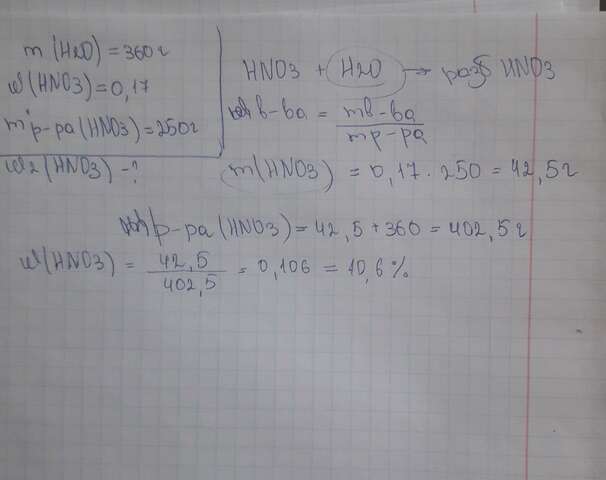 m (H2O) = 360 г
w(HNO3) = 0,17
m p-pa (HNO3) = 250 г
w2 (HNO3) - ?
HNO3 + H2O → разб HNO3
в-ва = mв-ва / mр-ра
m(HNO3) = 0,17 · 250 = 42,5 г
р-ра (HNO3) = 42,5 + 360 = 402,5 г
w(HNO3) = 42,5 / 402,5 = 0,106 = 10,6 %